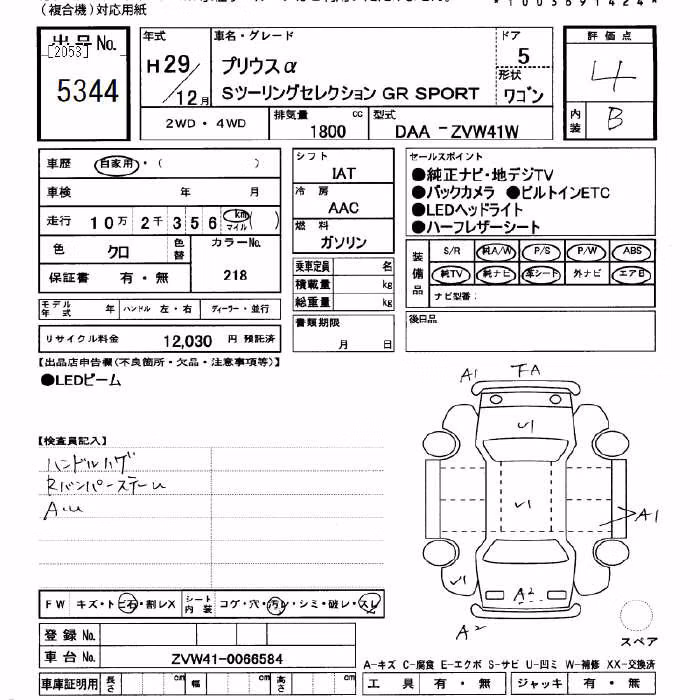 (複合機)対応用紙
*1003691424*
出品No.
[2053]
5344
年式
H29/12月
車名・グレード
プリウスα
Sツーリングセレクション GR SPORT
ドア
5
形状
ワゴン
評価点
4
内装
B
2WD・4WD
排気量
1800 cc
型式
DAA -ZVW41W
車歴 自家用・( )
車検 年 月
走行 10万 2千 3 5 6 km マイル ( )
色 クロ 色替 カラーNo.
保証書 有・無 218
モデル年式 年 ハンドル 左・右 ディーラー・並行
リサイクル料金 12,030 円 預託済
シフト
IAT
冷房
AAC
燃料
ガソリン
乗車定員 名
積載量 kg
総重量 kg
書類期限
月 日
セールスポイント
●純正ナビ・地デジTV
●バックカメラ ●ビルトインETC
●LEDヘッドライト
●ハーフレザーシート
装備品
S/R 純A/W P/S P/W ABS
純TV 純ナビ 革シート 外ナビ エアB
ナビ型番:
後日品
【出品店申告欄(不良箇所・欠品・注意事項等)】
●LEDビーム
【検査員記入】
ハンドルハゲ
RバンパーステーU
A.U
A1 FA
U1
U1
A1
U1
A2
A2
スペア
FW キズ・トビ石・割レX シート内装 コゲ・穴・汚レ・シミ・破レ・スレ
登録No.
車台No. ZVW41-0066584
車庫証明用 長さ cm 幅 cm 高さ cm
A-キズ C-腐食 E-エクボ S-サビ U-凹ミ W-補修 XX-交換済
工具 有・無 ジャッキ 有・無